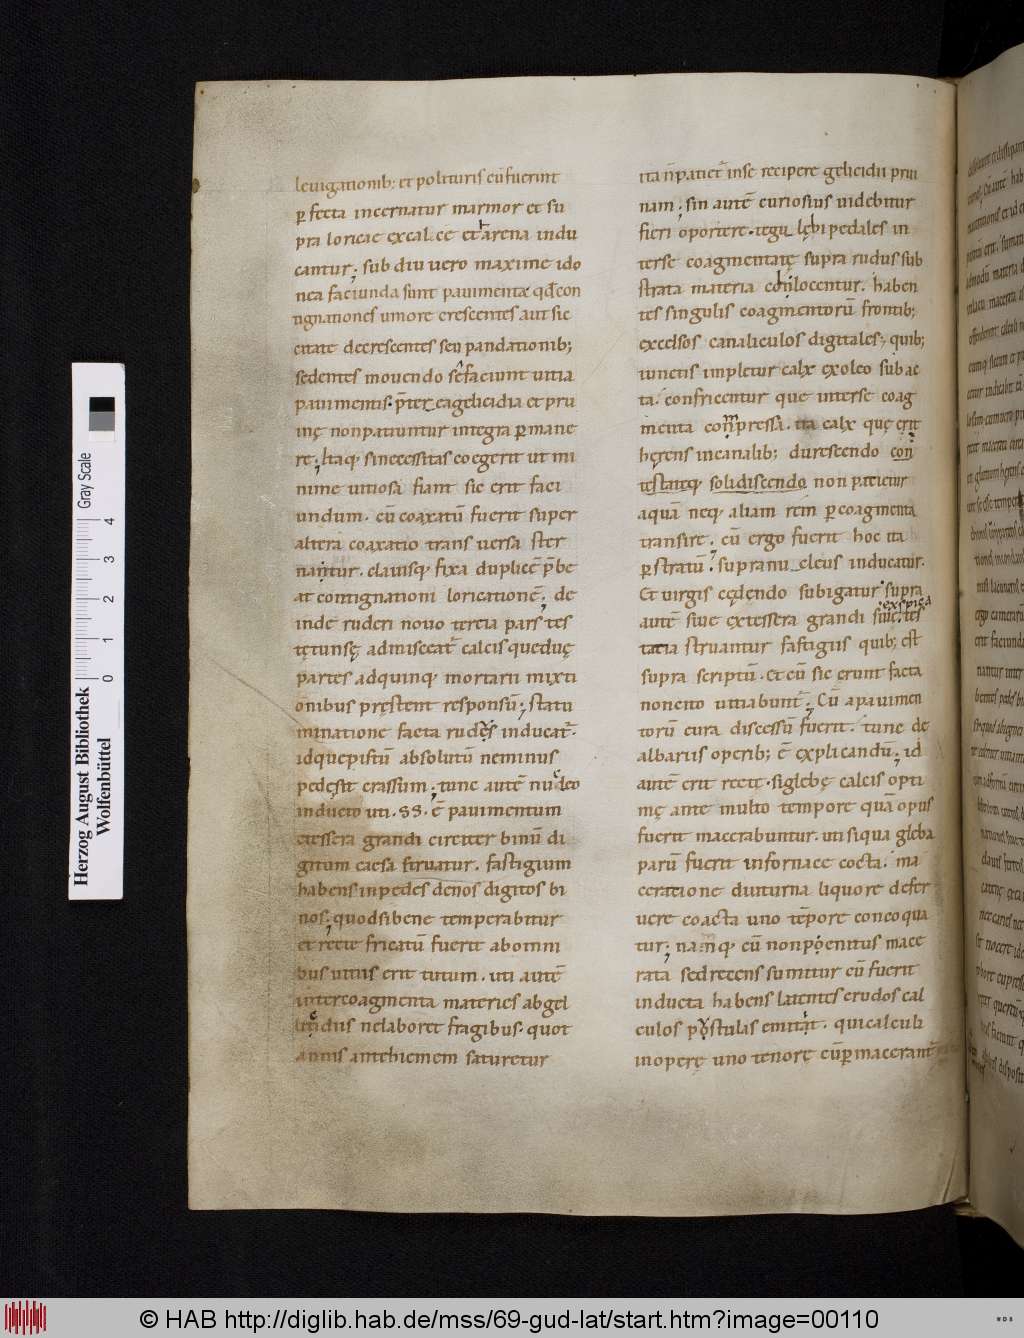 leuigationib; et polituris cū fuerint
p̱fecta incernatur marmor et su
pra loricae excalce et harena indu
cantur; sub diu uero maxime ido
nea faciunda sunt pauimenta qđ con
tignationes umore crescentes aut sic
citate decrescentes seu pandationib;
sedentes mouendo sefaciunt uitia
pauimentis. p̄terea gelicidia et pru
inę non patiuntur integra p̱mane
re; Itaq; si necessitas coegerit ut mi
nime uitiosa fiant sic erit faci
undum. cū coaxatū fuerit super
altera coaxatio trans uersa ster
nantur. clauisq; fixa duplicē p̄be
at contignationi loricationē; de
inde ruderi nouo tercia pars tes
tę tunsę admisceat̄ calcis quę duę
partes ad quinq; mortarii mixti
onibus pręstent responsū; statu
minatione facta rudes inducat̄.
idque pistū absolutū ne minus
pede sit crassum; tunc autē nucleo
inducto uti. SS. ē pauimentum
e tessera grandi circiter binū di
gitum caesa struatur. fastigium
habens in pedes denos digitos bi
nos; quod si bene temperabitur
et recte fricatū fuerit ab omni
bus uitiis erit tutum. uti autē
inter coagmenta materies ab gel
icidiis ne laboret fragibus. quot
annis ante hiemem saturetur
ita n̄ patiet̄ in se recipere gelicidii prui
nam; sin autē curiosius uidebitur
fieri oportere. tegulę bipedales in
ter se coagmentatę supra rudus sub
strata materia conlocentur. haben
tes singulis coagmentorū frontib;
excelsos canaliculos digitales; quib;
iunctis impletur calx ex oleo subac
ta. confricentur que inter se coag
menta compressa. ita calx quę erit
hęrens in canalib; durescendo con
testatq; solidiscendo non patietur
aquā neq; aliam rem p̱ coagmenta
transire. cū ergo fuerit hoc ita
p̱stratū. supra nucleus inducatur.
Et uirgis cędendo subigatur. supra
autē siue ex tessera grandi siue ex spica tes
tacia struantur fastigiis quib; est
supra scriptū. et cū sic erunt facta
non cito uitiabunt̄; Cū a pauimen
torū cura discessū fuerit. tunc de
albariis operib; ē explicandū; id
autē erit recte. si glebę calcis opti
mę ante multo tempore quā opus
fuerit macerabuntur. uti siqua gleba
parū fuerit in fornace cocta. ma
ceratione diuturna liquore defer
uere coacta uno tēpore concoqua
tur; namq; cū non pęnitus mace
rata sed recens sumitur cū fuerit
inducta habens latentes crudos cal
culos pustulas emittat. qui calculi
in operę uno tenorę cū p̱macerant̄
Herzog August Bibliothek
Wolfenbüttel
Gray Scale
0 1 2 3 4
© HAB http://diglib.hab.de/mss/69-gud-lat/start.htm?image=00110